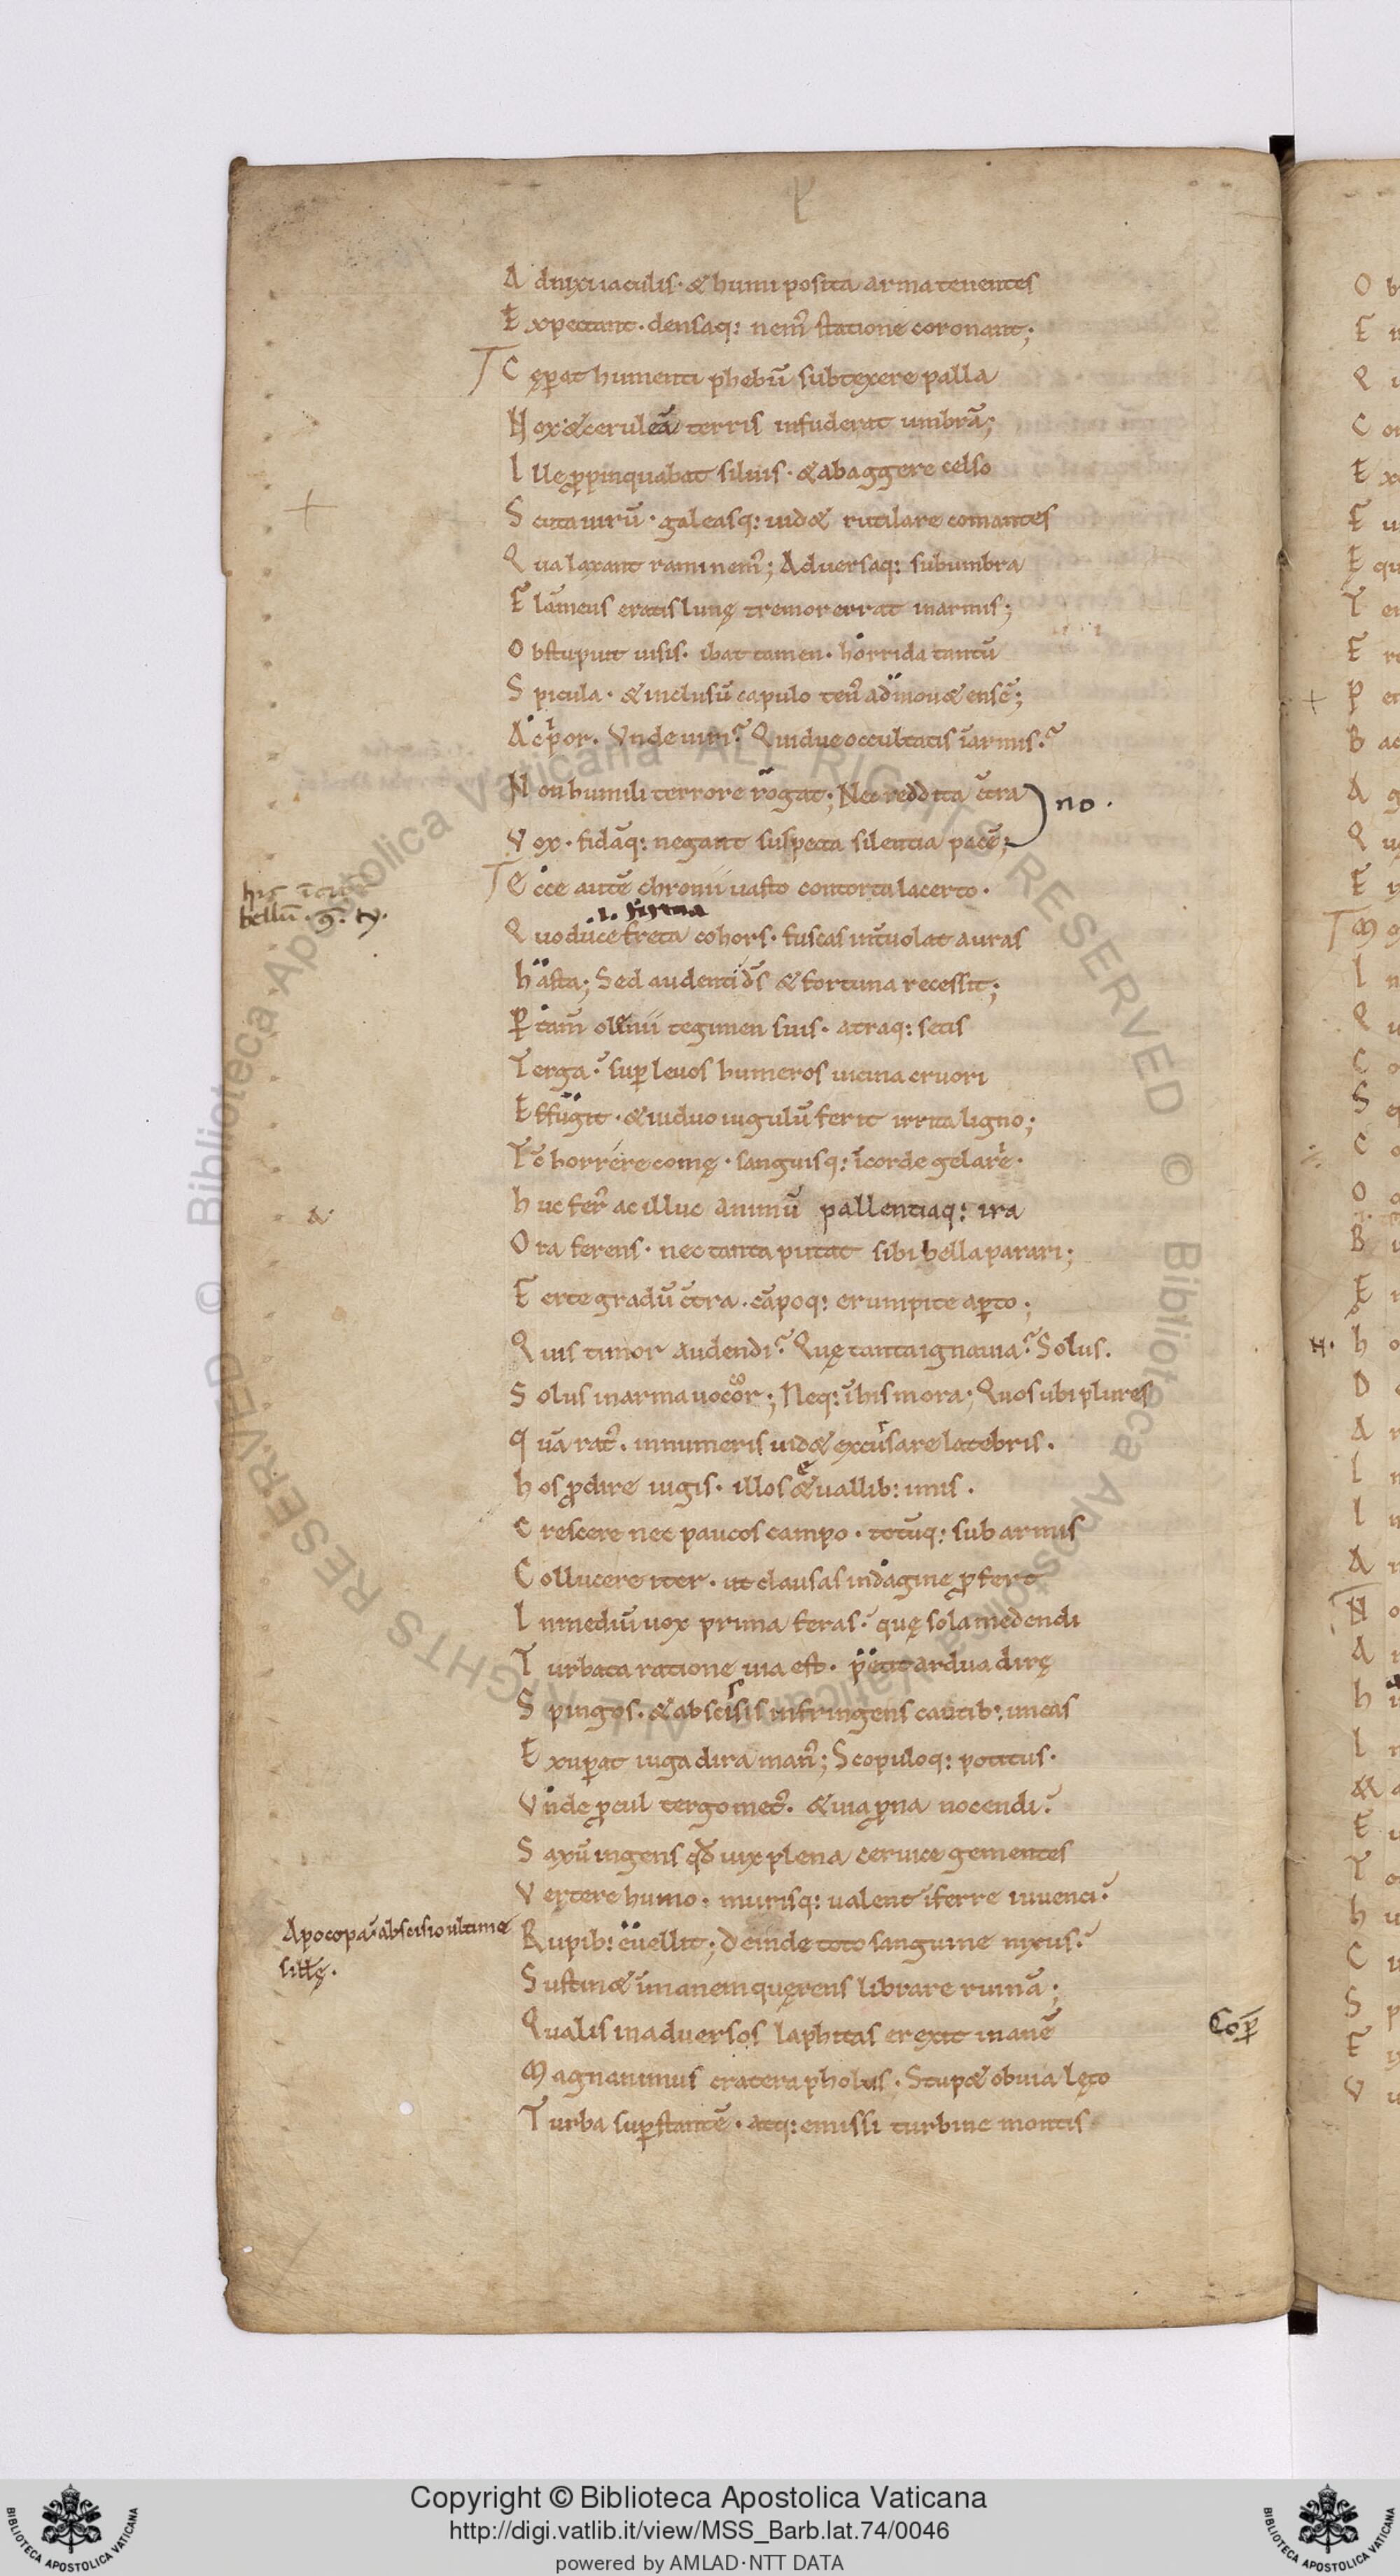 A dnixi iaculis· & humi posita arma tenentes
E xpectant· densaq: nem᷒ statione coronant;
C ęꝑat humenti phebū subtexere palla
N ox & ceruleā terris infuderat umbrā;
I lle ꝓpinquabat siluis· & ab aggere celso
S cuta uirū· galeasq: uid& rutilare comantes
Q ua laxant rami nem᷒; Aduersaq: sub umbra
F lāmeus eratis lunę tremor errat in armis;
O bstupuit uisis· ibat tamen· horrida tantū
S picula· & inclusū capulo ten᷒ admou& ensē;
A c pͥor· Vnde uiri? Quidue occultatis ī armis?
N on humili terrore rogat; Nec reddita ctͣra
no·
V ox· fidāq: negant suspecta silentia pacē;
E cce autē chromii uasto contorta lacerto·
his
bellū·
i·
Q uo duce freta cohors· fuscas int̄uolat auras
h asta; Sed audenti d̄s & fortuna recessit;
P̱ tam̄ olenii tegimen suis· atraq: setis
T erga· suꝑ leuos humeros uicina cruori
E ffugit· & uiduo iugulū ferit irrita ligno;
T c̄ horrere comę· sanguisq: ī corde gelari·
h uc fer᷒ ac illuc animū pallentiaq: ira
O ra ferens· nec tanta putat sibi bella parari;
F erte gradū ctͣra· cāpoq: erumpite aꝑto;
Q uis timor audendi? Quę tanta ignauia? Solus·
S olus in arma uocor; Neq: in his mora; Quos ubi plures
Q uā rat᷒· innumeris uid& excursare latebris·
h os ꝓdire iugis· illos e uallib: imis·
C rescere nec paucos campo· totūq: sub armis
C ollucere iter· ut clausas indagine ꝓfert
I n mediū uox prima feras· quę sola medendi
T urbata ratione uia est· petit ardua dirę
S pingos· & abscisis infringens cautib: uncas
E xuꝑat iuga dira man᷒; Scopuloq: potitus·
V nde ꝓcul tergo met᷒· & uia ꝓna nocendi·
S axū ingens qd̄ uix plena ceruice gementes
V ertere humo· murisq: ualent īferre iuuenci·
Apocopa· abscisio ultime
sillę·
R upib: euellit; Deinde toto sanguine nixus·
S ustin& īmanem quęrens librare ruinā;
Q ualis in aduersos laphitas erexit inanē
Coꝝ
M agnanimus cratera pholus· Stup& obuia lęto
T urba suꝑstantē· atq: emissi turbine montis
Copyright © Biblioteca Apostolica Vaticana
http://digi.vatlib.it/view/MSS_Barb.lat.74/0046
powered by AMLAD·NTT DATA